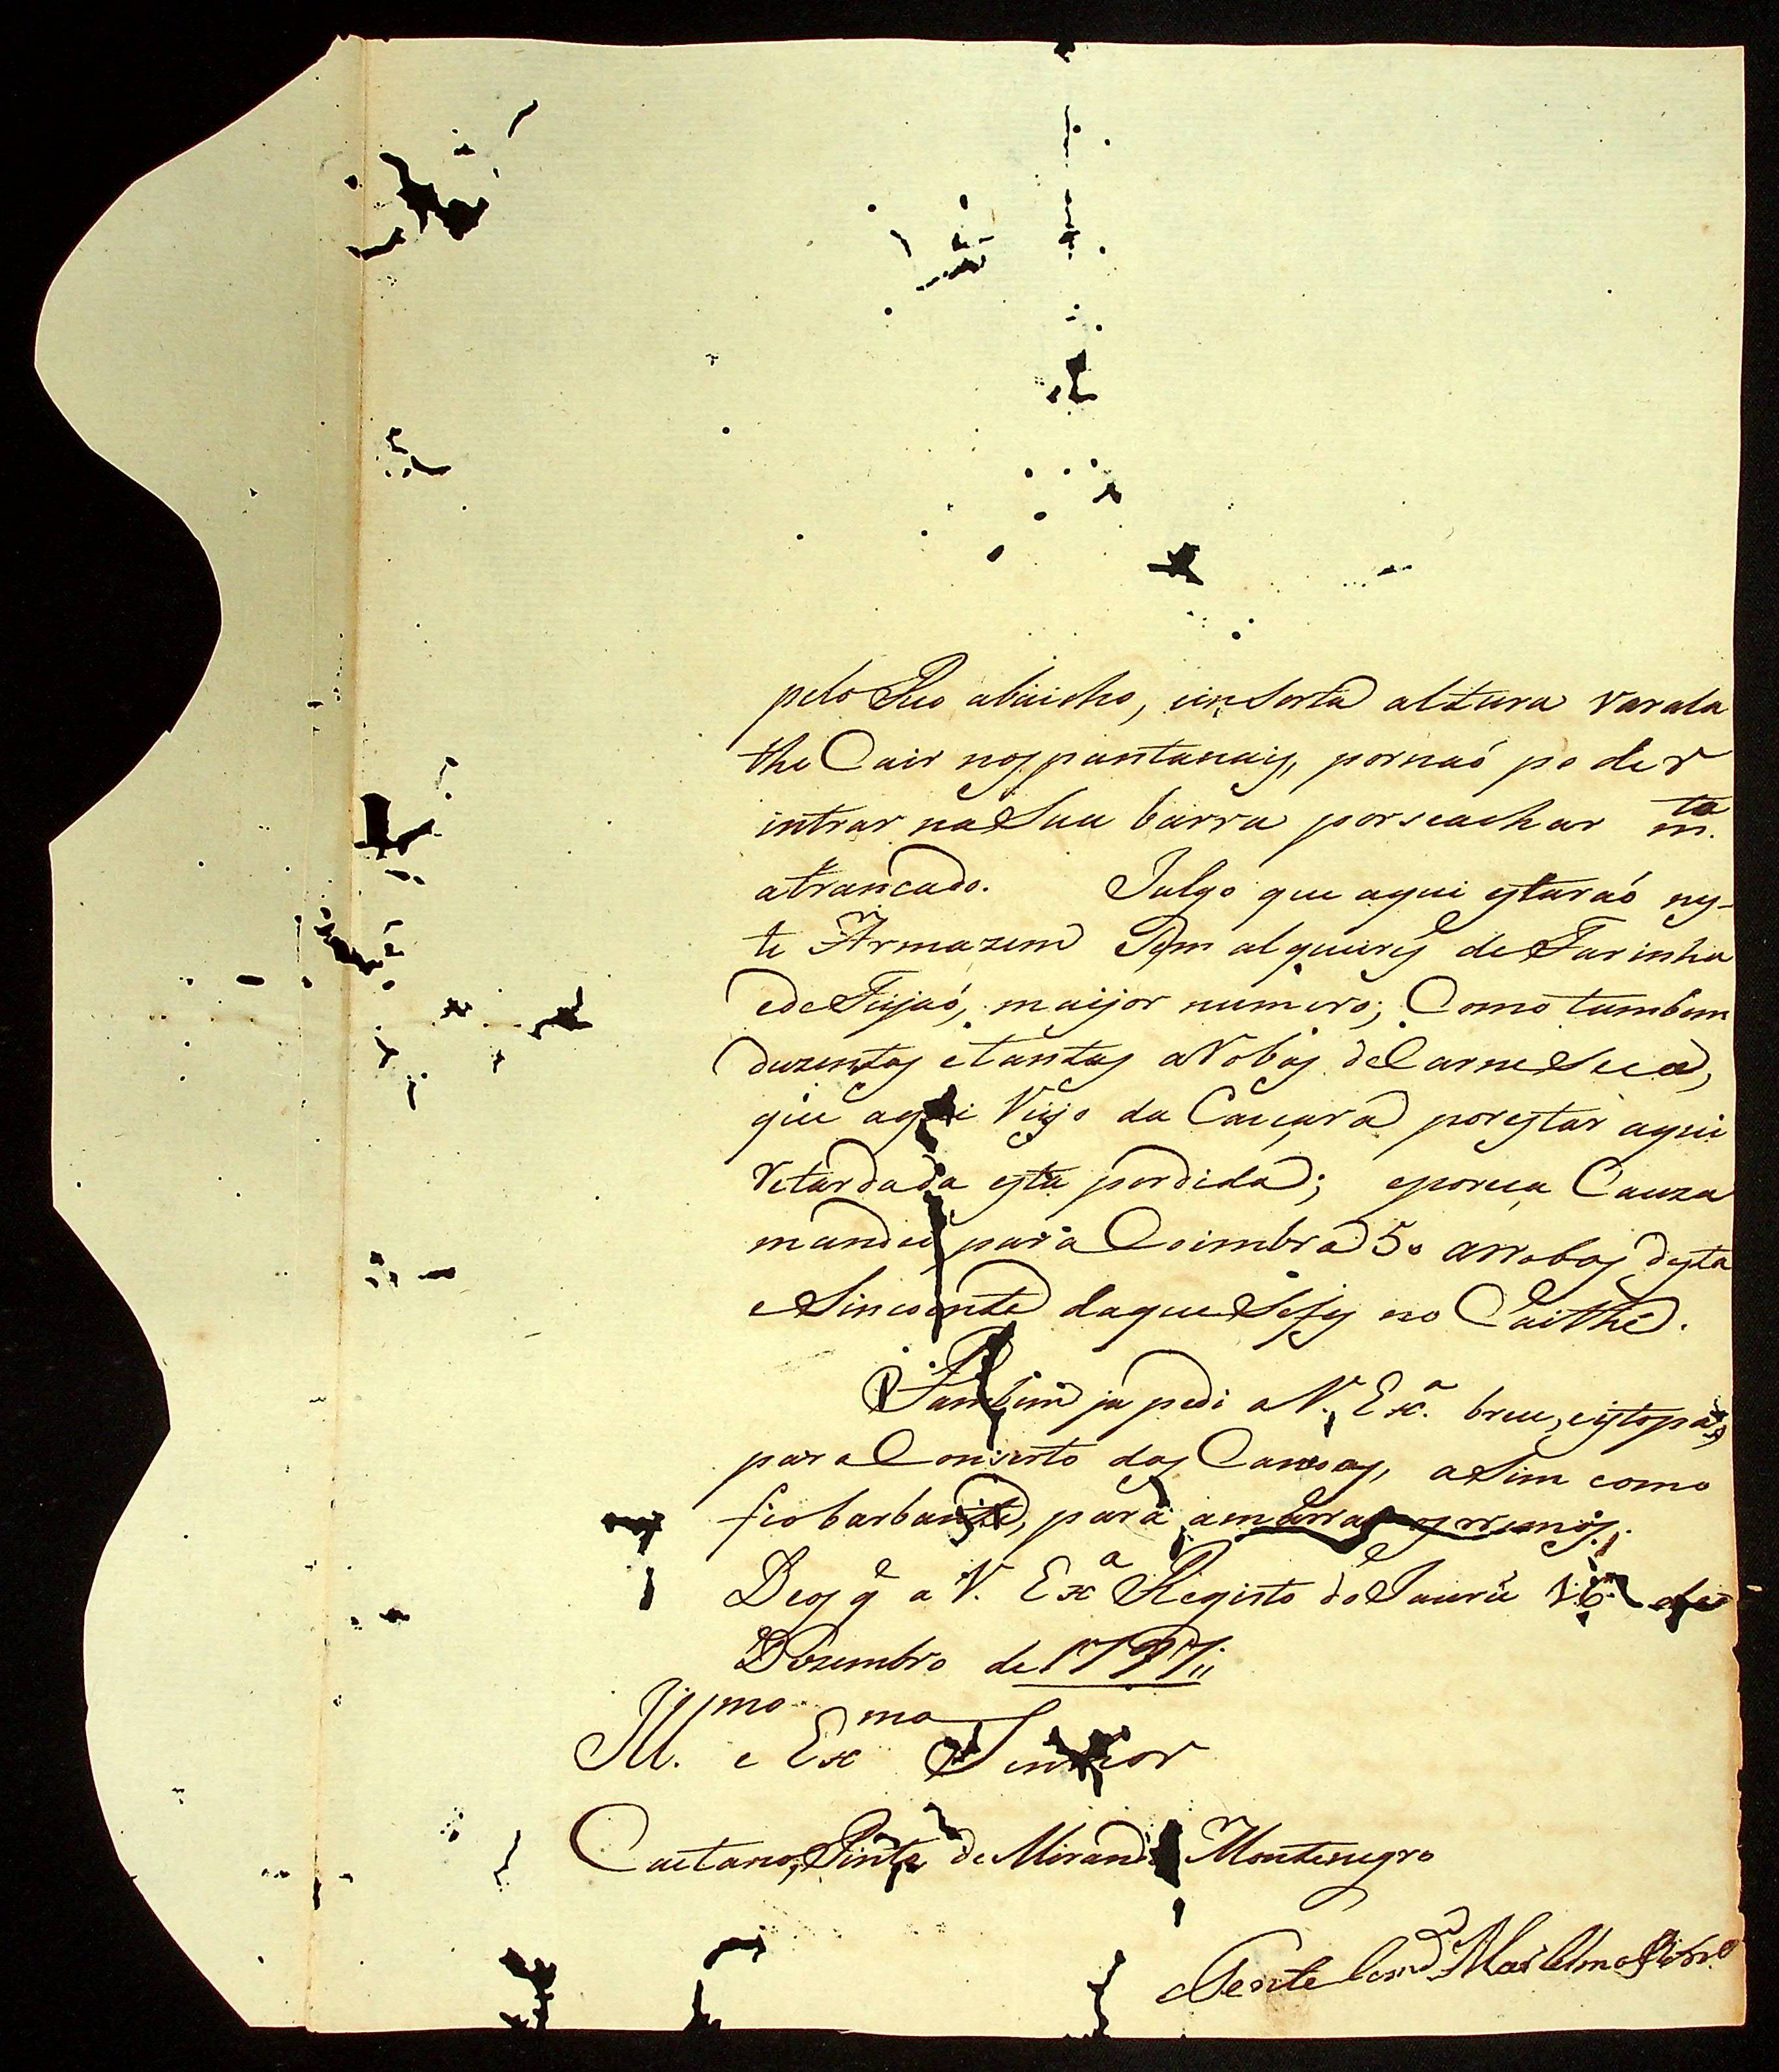 pelo Rio abaicho, em Serta altura varala
the Cair nos pantanais, por naó poder
intrar na Sua barra por se achar m.to
atrancado. Julgo que aqui estaraó nes-
te Armazem Sem alqueires de Farinha
e de Feijaó, maijor numero; Como tambem
duzentas e tantas aRobas de Carne Seca,
que aqui Vejo da Caiçara por estar aqui
Retardada esta perdida; e por eça Cauza
mandei para Coimbra 50 arrobas desta
e Sincoente da que Se fes no Caithé.
Tambem ja pedi a V. Ex.a breu, e istopa,
para Conserto das Canoas, aSim como
fio barbante, para amarrar os rremos.
Deos g.e a V. Ex.a Registo do Jaurú 16 de
Dezembro de 1797
Ill.mo e Ex.mo Senhor
Caetano Pinto de Miranda Montenegro
Tente Com.d